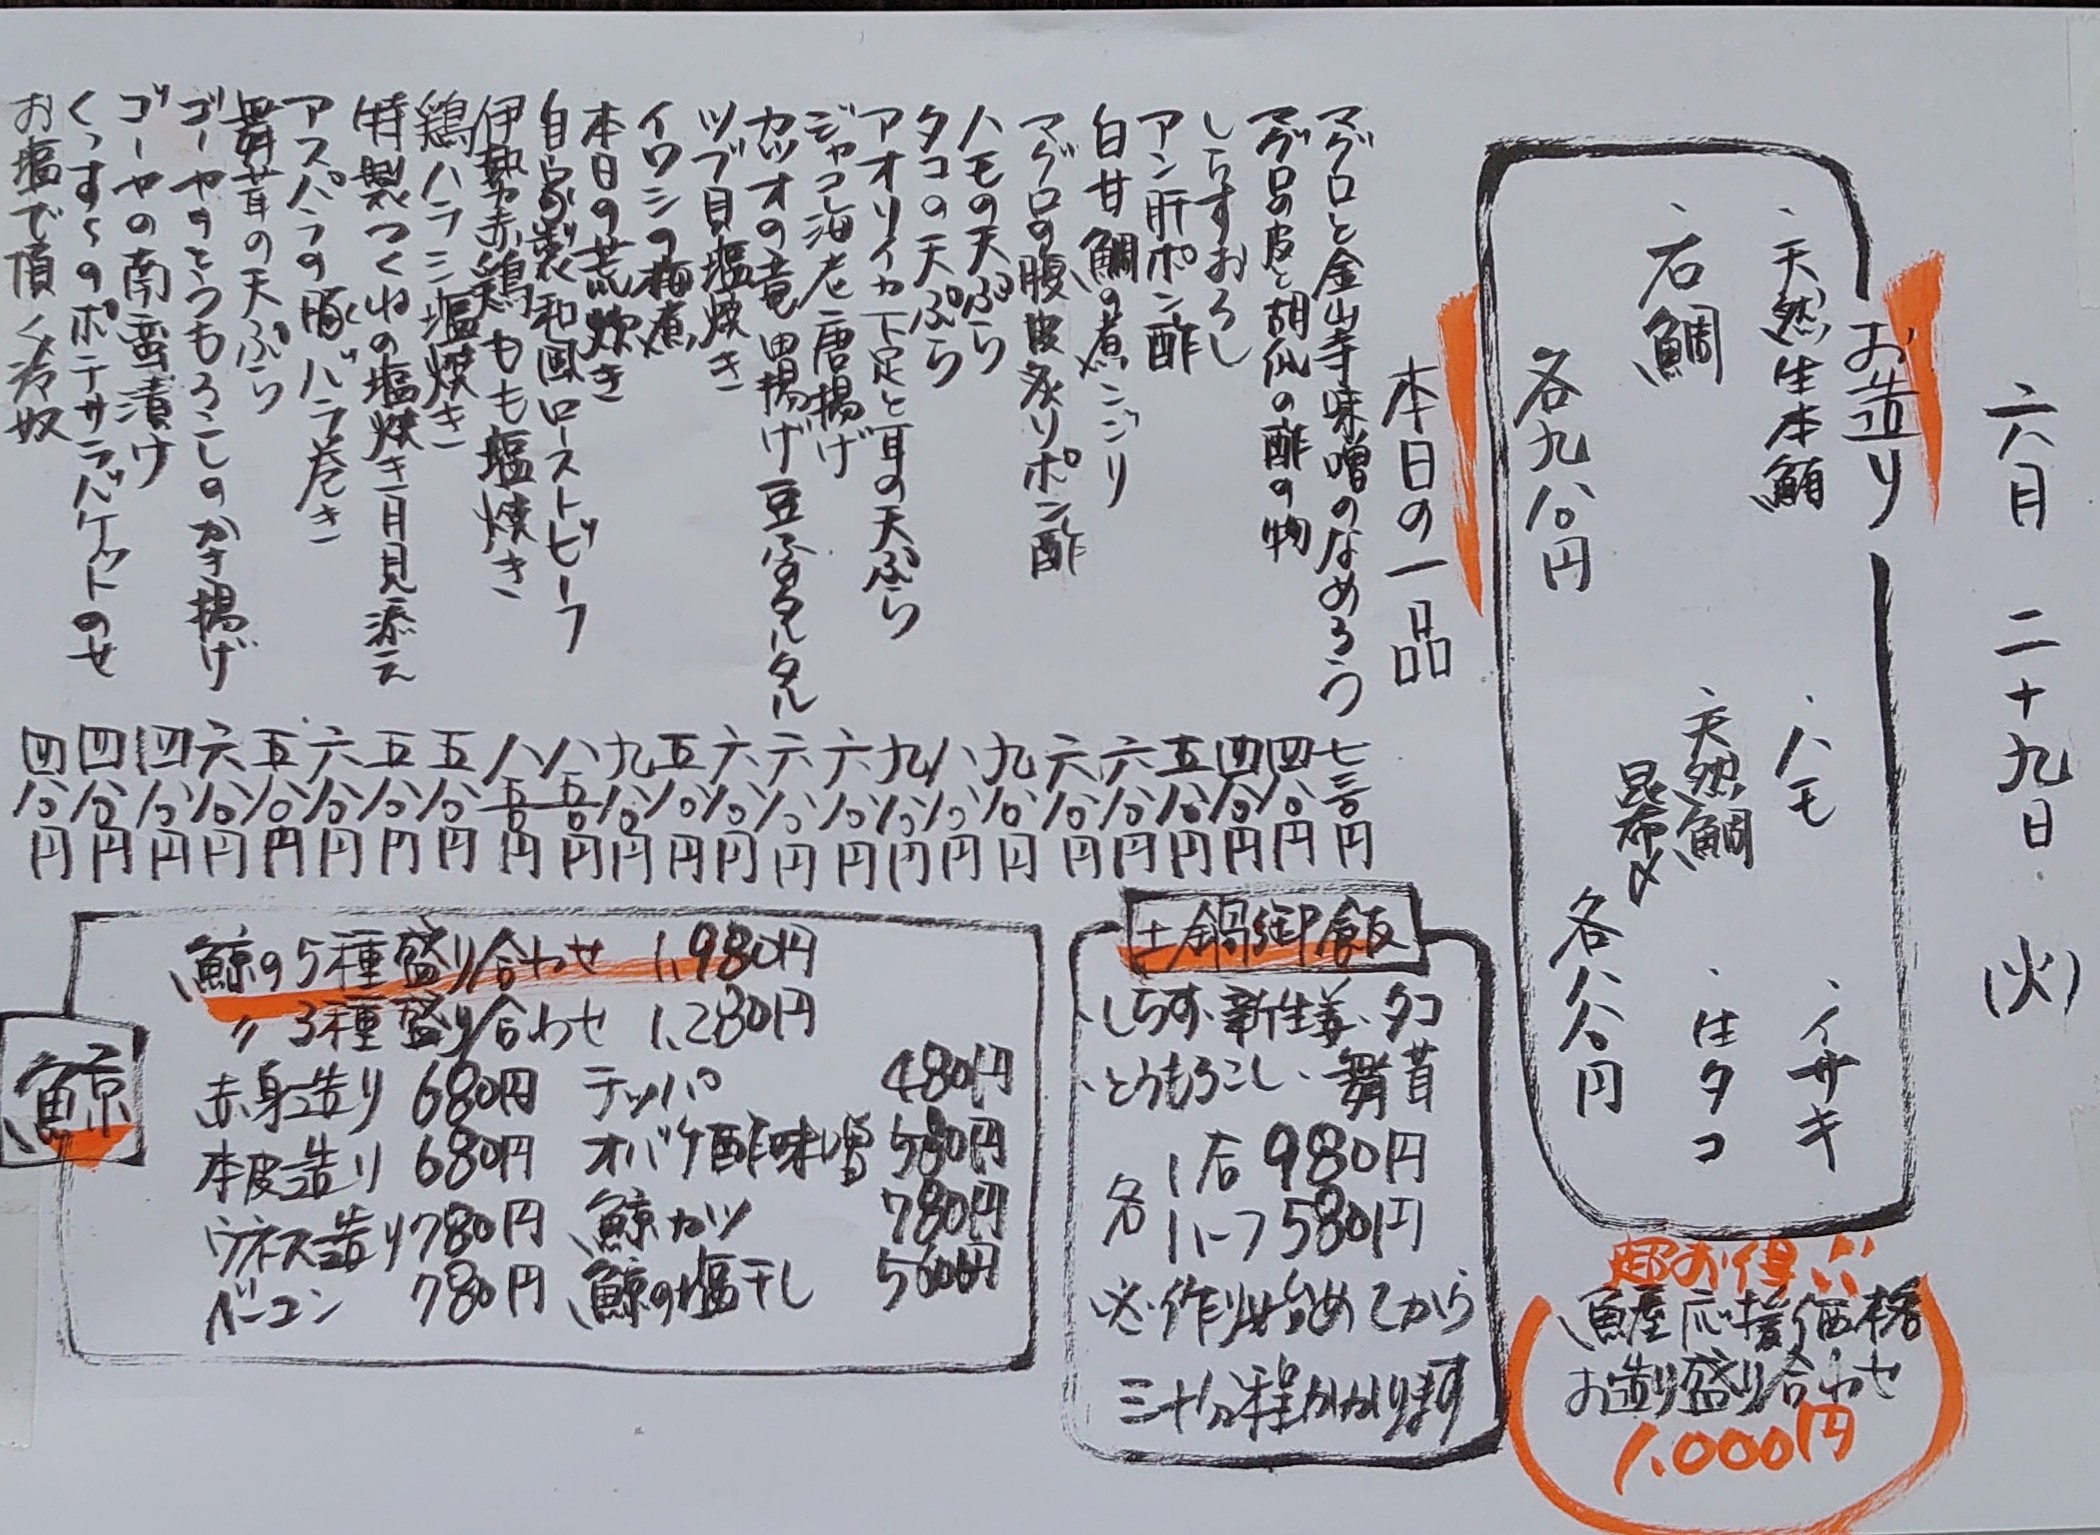 六月二十九日(火)
お造り
・天然生本鮪
・ハモ
・イサキ
・石鯛
・天然鯛
昆布〆
・生タコ
各九八〇円
各八八〇円
超お得!!
魚屋応援価格
お造り盛り合わせ
1,000円
本日の一品
マグロと金山寺味噌のなめろう 七三〇円
マグロの皮と胡瓜の酢の物 四八〇円
しらすおろし 四八〇円
アン肝ポン酢 五八〇円
白甘鯛の煮こごり 六八〇円
マグロの腹皮炙りポン酢 六八〇円
ハモの天ぷら 九八〇円
タコの天ぷら 八八〇円
アオリイカ下足と耳の天ぷら 九八〇円
ジャコ海老唐揚げ 六八〇円
カツオの竜田揚げ豆ふタルタル 六八〇円
ツブ貝塩焼き 六八〇円
イワシの梅煮 五八〇円
本日の荒炊き 九八〇円
自家製和風ローストビーフ 八五〇円
伊勢赤鶏もも塩焼き 八五〇円
鶏ハラミ塩焼き 五八〇円
特製つくねの塩焼き月見添え 五八〇円
アスパラの豚バラ巻き 六八〇円
舞茸の天ぷら 五八〇円
ゴーヤとうもろこしのかき揚げ 六八〇円
ゴーヤの南蛮漬け 四八〇円
のポテサラバケットのせ 四八〇円
お塩で頂く冷奴 四八〇円
土鍋御飯
・しらす・新生姜・タコ
・とうもろこし・舞茸
各 1合 980円
1ハーフ 580円
※作り始めてから
三十分程かかります
鯨
鯨の5種盛り合わせ 1,980円
〃 3種盛り合わせ 1,280円
赤身造り 680円 テッパ 480円
本皮造り 680円 オバケ酢味噌 580円
ウネス造り 780円 鯨カツ 780円
ベーコン 780円 鯨の塩干し 560円